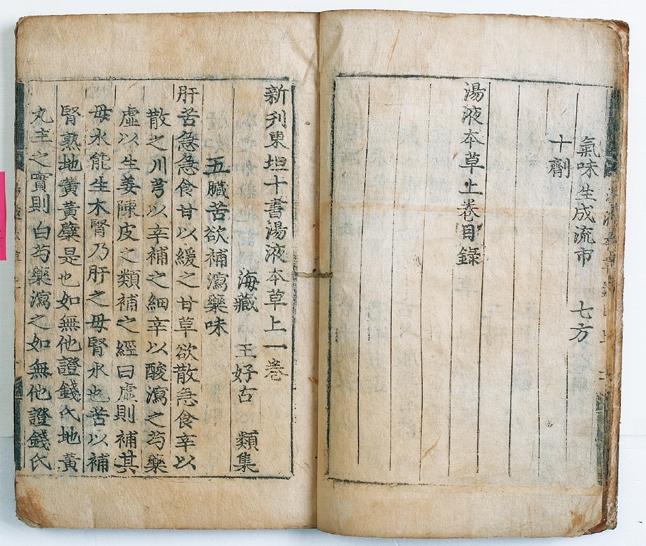 氣味生成流布 七方
十劑
湯液本草上卷目錄
新刋東垣十書湯液本草上一卷
海藏 王好古 類集
五臟苦欲補瀉藥味
肝苦急急食甘以緩之甘草欲散急食辛以
散之川芎以辛補之細辛以酸瀉之芍藥
虛以生姜陳皮之類補之經曰虛則補其
母水能生木腎乃肝之母腎水也苦以補
腎熟地黃黃蘗是也如無他證錢氏地黃
丸主之實則白芍藥瀉之如無他證錢氏